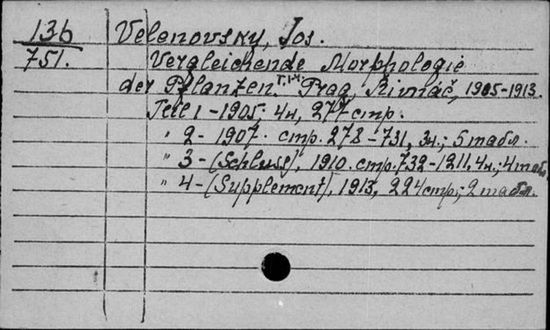 136 Velenovsky, Jos.
751. Vergleichende Morphologie
der Pflanzen. T.1-4. Prag, Řimáč, 1905-1913.
Teil 1 - 1905, 4н, 277 стр.
" 2 - 1907. стр. 278-731, 3н.; 5 табл.
" 3 - (Schluss), 1910. стр. 732-1211, 4н.; 4 табл.
" 4 - (Supplement), 1913, 224 стр.; 2 табл.